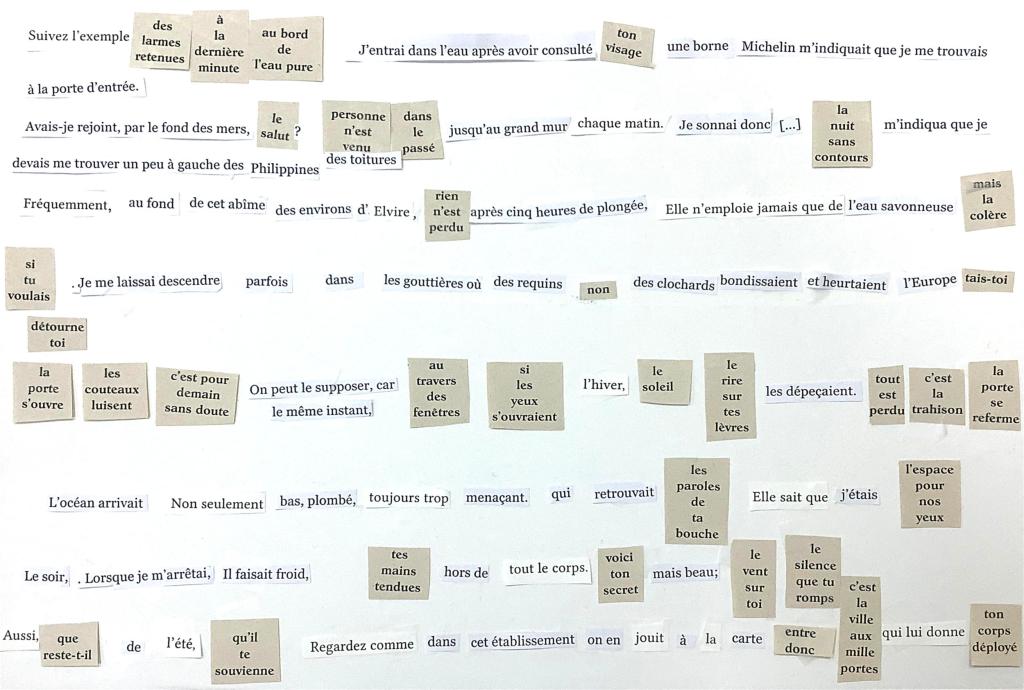 Suivez l'exemple des larmes retenues à la dernière minute au bord de l'eau pure J'entrai dans l'eau après avoir consulté ton visage une borne Michelin m'indiquait que je me trouvais
à la porte d'entrée.
Avais-je rejoint, par le fond des mers, le salut ? personne n'est venu dans le passé jusqu'au grand mur chaque matin. Je sonnai donc [...] la nuit sans contours m'indiqua que je
devais me trouver un peu à gauche des Philippines des toitures
Fréquemment, au fond de cet abîme des environs d' Elvire, rien n'est perdu après cinq heures de plongée, Elle n'emploie jamais que de l'eau savonneuse mais la colère
si tu voulais . Je me laissai descendre parfois dans les gouttières où des requins non des clochards bondissaient et heurtaient l'Europe tais-toi
détourne toi
la porte s'ouvre les couteaux luisent c'est pour demain sans doute On peut le supposer, car le même instant, au travers des fenêtres si les yeux s'ouvraient l'hiver, le soleil le rire sur tes lèvres les dépeçaient. tout est perdu c'est la trahison la porte se referme
L'océan arrivait Non seulement bas, plombé, toujours trop menaçant. qui retrouvait les paroles de ta bouche Elle sait que j'étais l'espace pour nos yeux
Le soir, . Lorsque je m'arrêtai, Il faisait froid, tes mains tendues hors de tout le corps. voici ton secret mais beau; le vent sur toi le silence que tu romps
Aussi, que reste-t-il de l'été, qu'il te souvienne Regardez comme dans cet établissement on en jouit à la carte entre donc c'est la ville aux mille portes qui lui donne ton corps déployé